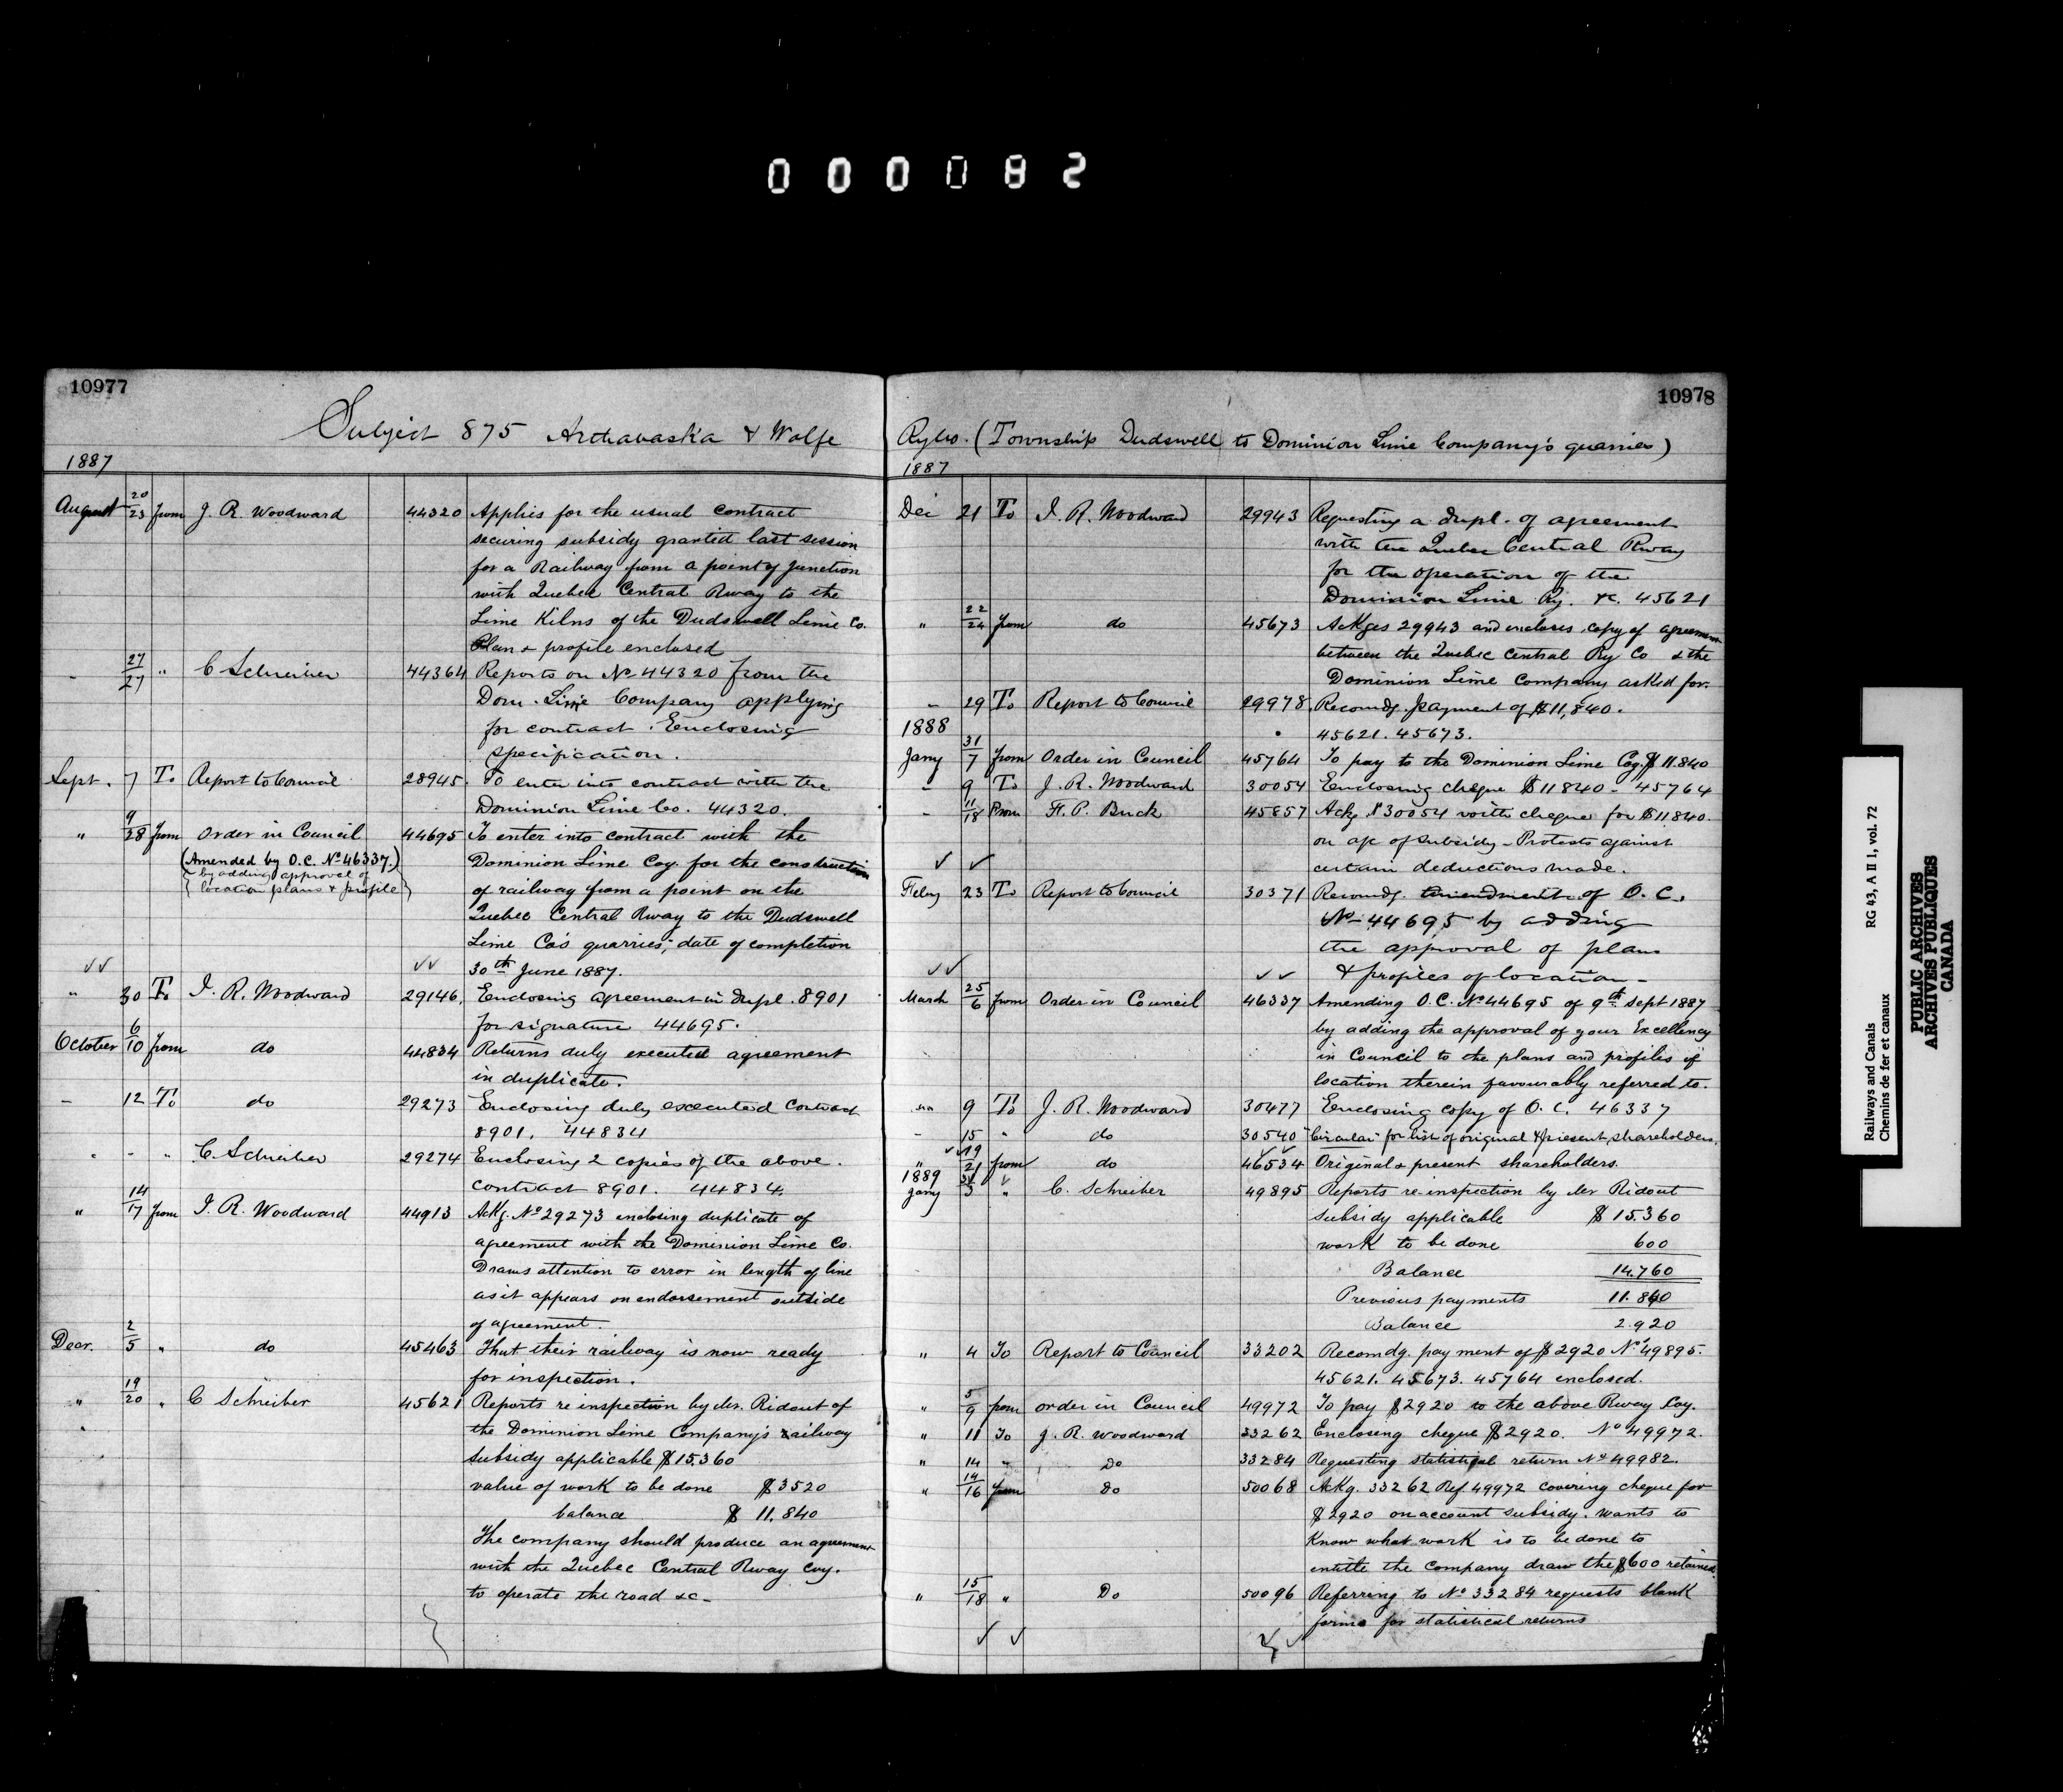 000082
10977
Subject 875 Arthabaska & Wolfe
1887
August 20/23 from J. R. Woodward 44320 Applies for the usual contract
securing subsidy granted last session
for a Railway from a point of junction
with Quebec Central Rway to the
Lime Kilns of the Dudswell Lime Co.
Plan & profile enclosed
- 27/27 " C Schreiber 44364 Reports on No 44320 from the
Dom. Lime Company applying
for contract. Enclosing
specification.
Sept. 7 To Report to Council 28945. To enter into contract with the
Dominion Lime Co. 44320.
" 9/28 from Order in Council 44695 To enter into contract with the
(Amended by O.C. No 46337.) Dominion Lime Coy. for the construction
by adding approval of
location plans & profile of railway from a point on the
Quebec Central Rway to the Dudswell
Lime Co's quarries; date of completion
30th June 1887.
" 30 To J. R. Woodward 29146. Enclosing agreement in dupl. 8901
for signature 44695.
October 6/10 from do 44834 Returns duly executed agreement
in duplicate.
- 12 To do 29273 Enclosing duly executed contract
8901. 44834
" - " C. Schreiber 29274 Enclosing 2 copies of the above.
contract 8901. 44834.
" 14/17 from J. R. Woodward 44913 Ackg. No 29273 enclosing duplicate of
agreement with the Dominion Lime Co.
Draws attention to error in length of line
as it appears on endorsement outside
of agreement.
Decr. 2/5 " do 45463 That their railway is now ready
for inspection.
" 19/20 " C Schreiber 45621 Reports re inspection by Mr. Ridout of
the Dominion Lime Company's railway
subsidy applicable $15.360
value of work to be done $3520
balance $ 11.840
The company should produce an agreement
with the Quebec Central Rway Coy.
to operate the road &c-
10978
Ry Co. (Township Dudswell to Dominion Lime Company's quarries)
1887
Dec 21 To J. R. Woodward 29943 Requesting a dupl. of agreement
with the Quebec Central Rway
for the operation of the
Dominion Lime Ry. &c. 45621
" 22/24 from do 45673 Ackges 29943 and encloses copy of agreement
between the Quebec Central Ry Co & the
Dominion Lime Company asked for.
- 29 To Report to Council 29978. Recomdg. payment of $11,840.
1888
45621. 45673.
Jany 31/7 from Order in Council 45764 To pay to the Dominion Lime Coy. $11.840
- 9 To J. R. Woodward 30054 Enclosing cheque $11840 - 45764
- 11/18 From H. P. Buck 45857 Ackg. No 30054 with cheque for $11.840.
on a/c of subsidy - Protests against
certain deductions made.
Feby 23 To Report to Council 30371 Recomdg. amendment of O.C.
No 44695 by adding
the approval of plans
& profiles of location -
March 25/6 from Order in Council 46337 Amending O.C. No 44695 of 9th Sept 1887
by adding the approval of your Excellency
in Council to the plans and profiles of
location therein favourably referred to.
" 9 To J. R. Woodward 30477 Enclosing copy of O.C. 46337
- 15 " do 30540 Circular for list of original & present shareholders.
" 19/21 from do 46534 Original & present shareholders.
1889
Jany 3 " C. Schreiber 49895 Reports re-inspection by Mr Ridout
subsidy applicable $ 15.360
work to be done 600
Balance 14.760
Previous payments 11.840
Balance 2.920
" 4 To Report to Council 33202 Recomdg. payment of $2920 No 49895.
45621. 45673. 45764 enclosed.
" 5/9 from order in Council 49972 To pay $2920 to the above Rway Coy.
" 11 To J. R. Woodward 33262 Enclosing cheque $2920. No 49972.
" 14 " Do 33284 Requesting statistical return No 49982.
" 14/16 from Do 50068 Ackg. 33262 Ref 49972 covering cheque for
$2920 on account subsidy. wants to
know what work is to be done to
entitle the company draw the $600 retained.
" 15/18 " Do 50096 Referring to No 33284 requests blank
forms for statistical returns
Railways and Canals RG 43, A II 1, vol. 72
Chemins de fer et canaux
PUBLIC ARCHIVES
ARCHIVES PUBLIQUES
CANADA